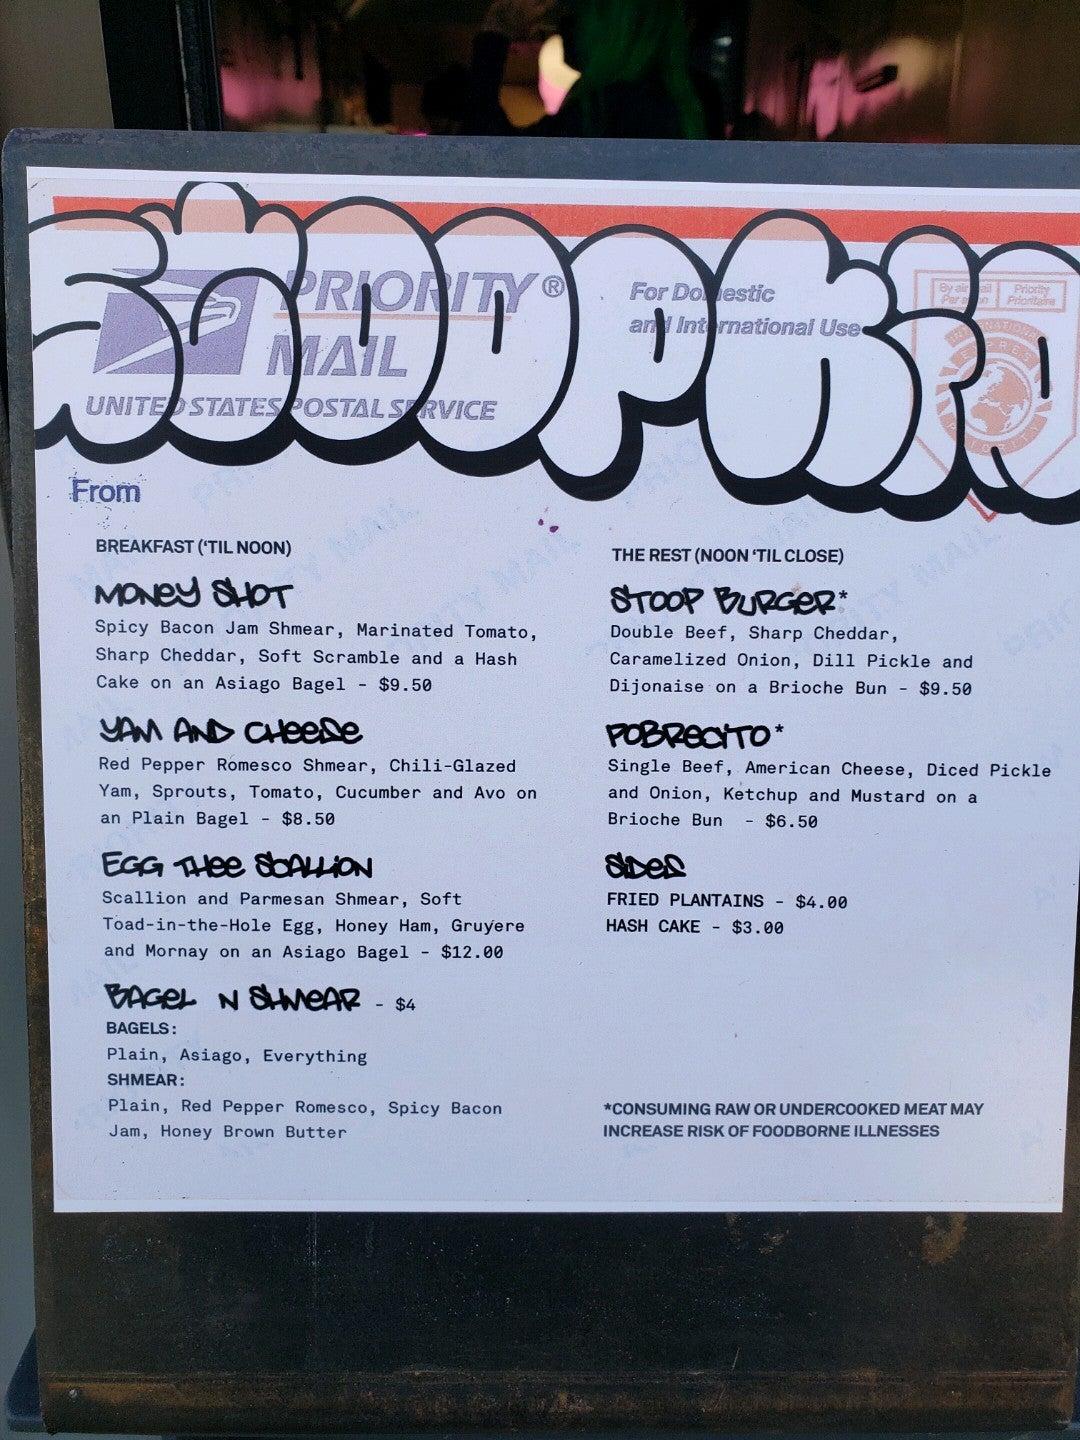 STOOPKID
PRIORITY®
MAIL
UNITED STATES POSTAL SERVICE
For Domestic
and International Use
By air mail
Par avion
Priority
Prioritaire
From
BREAKFAST ('TIL NOON)
MONEY SHOT
Spicy Bacon Jam Shmear, Marinated Tomato,
Sharp Cheddar, Soft Scramble and a Hash
Cake on an Asiago Bagel - $9.50
YAM AND CHEESE
Red Pepper Romesco Shmear, Chili-Glazed
Yam, Sprouts, Tomato, Cucumber and Avo on
an Plain Bagel - $8.50
EGG THEE SCALLION
Scallion and Parmesan Shmear, Soft
Toad-in-the-Hole Egg, Honey Ham, Gruyere
and Mornay on an Asiago Bagel - $12.00
BAGEL N SHMEAR - $4
BAGELS:
Plain, Asiago, Everything
SHMEAR:
Plain, Red Pepper Romesco, Spicy Bacon
Jam, Honey Brown Butter
THE REST (NOON 'TIL CLOSE)
STOOP BURGER*
Double Beef, Sharp Cheddar,
Caramelized Onion, Dill Pickle and
Dijonaise on a Brioche Bun - $9.50
POBRECITO*
Single Beef, American Cheese, Diced Pickle
and Onion, Ketchup and Mustard on a
Brioche Bun - $6.50
SIDES
FRIED PLANTAINS - $4.00
HASH CAKE - $3.00
*CONSUMING RAW OR UNDERCOOKED MEAT MAY
INCREASE RISK OF FOODBORNE ILLNESSES